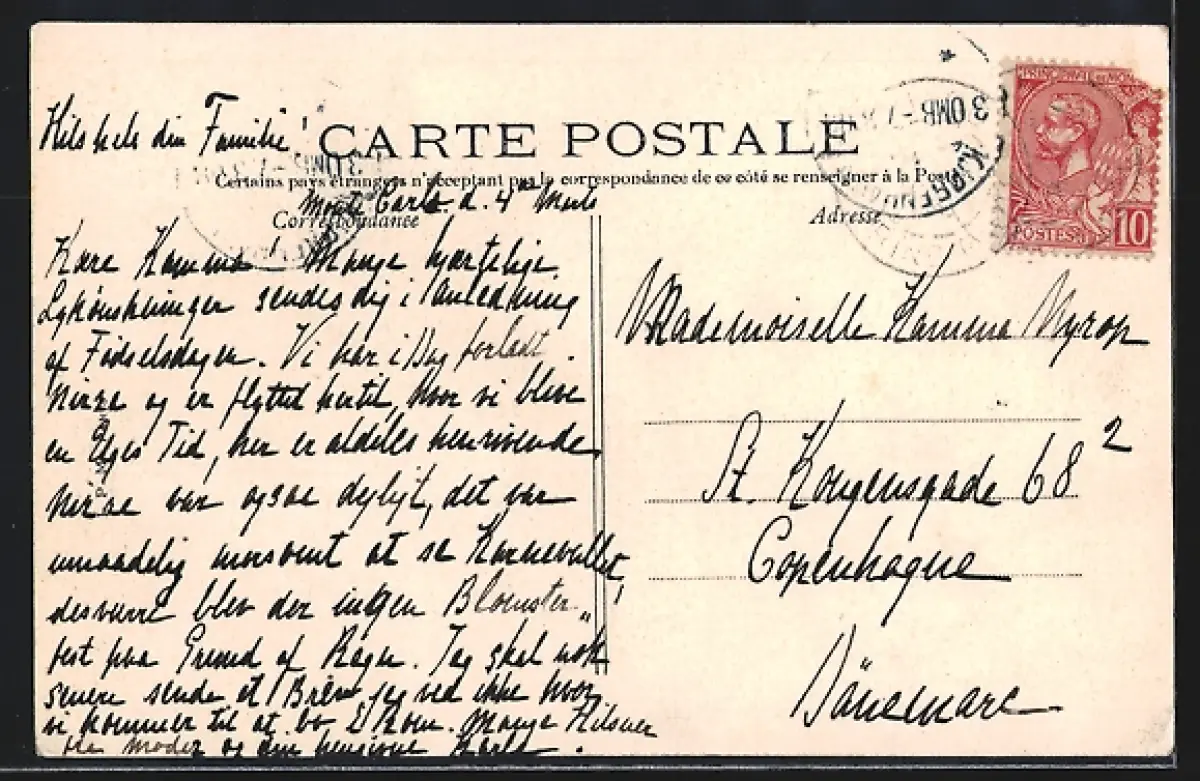 Hils hele din Familie!
CARTE POSTALE
Certains pays étrangers n'acceptent pas la correspondance de ce côté se renseigner à la Poste
Monte Carlo d. 4de Marts
Correspondance
Adresse
Kære Kamma! Mange hjærtelige
Lykønskninger sendes dig i Anledning
af Fødselsdagen. Vi har i Dag forladt
Nizza og er flyttet hertil, hvor vi blive
en Uges Tid, her er aldeles henrivende,
Nizza var ogsaa dejligt, det var
umaadelig morsomt at se Karnevallet,
desværre blev der ingen Blomster„
fest paa Grund af Regn. Jeg skal nok
senere sende et Brev, jeg ved ikke hvor
vi kommer til at bo i Rom. Mange Hilsner
fra Moder og din hengivne
PRINCIPAUTÉ DE MON
POSTES
10
3 OMB
KJØBENH
Mademoiselle Kamma Nyrop
St. Kongensgade 68 2
Copenhague
Dänemarc